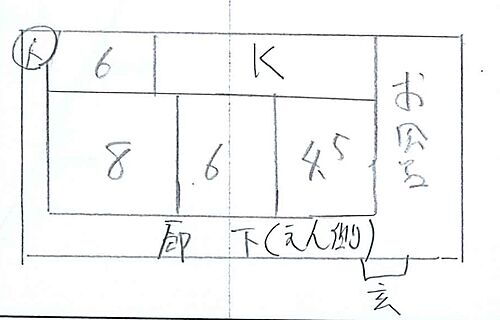 ト
6
K
お風呂
8
6
4.5
廊下(えん側)
玄